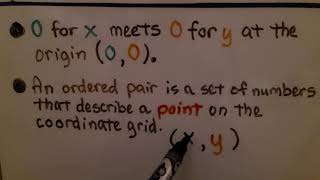 0 for x meets 0 for y at the
origin (0,0).
An ordered pair is a set of numbers
that describe a point on the
coordinate grid.
(x, y)